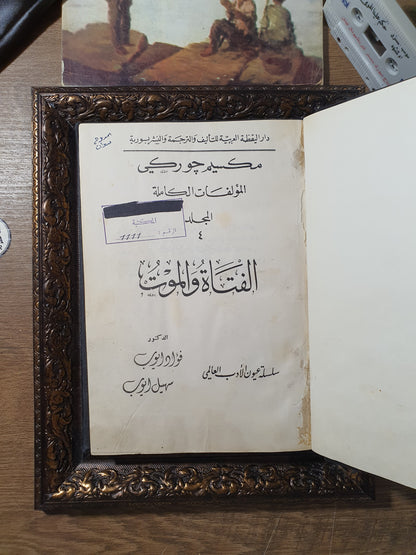 دار اليقظة العربية للتأليف والترجمة والنشر بسورية
مكسيم جوركي
المؤلفات الكاملة
المجلد
٤
المكتبة
الرقم:
١١١١
الفتاة والموت
الدكتور
فؤاد ايوب
سهيل ايوب
سلسلة عيون الأدب العالمي